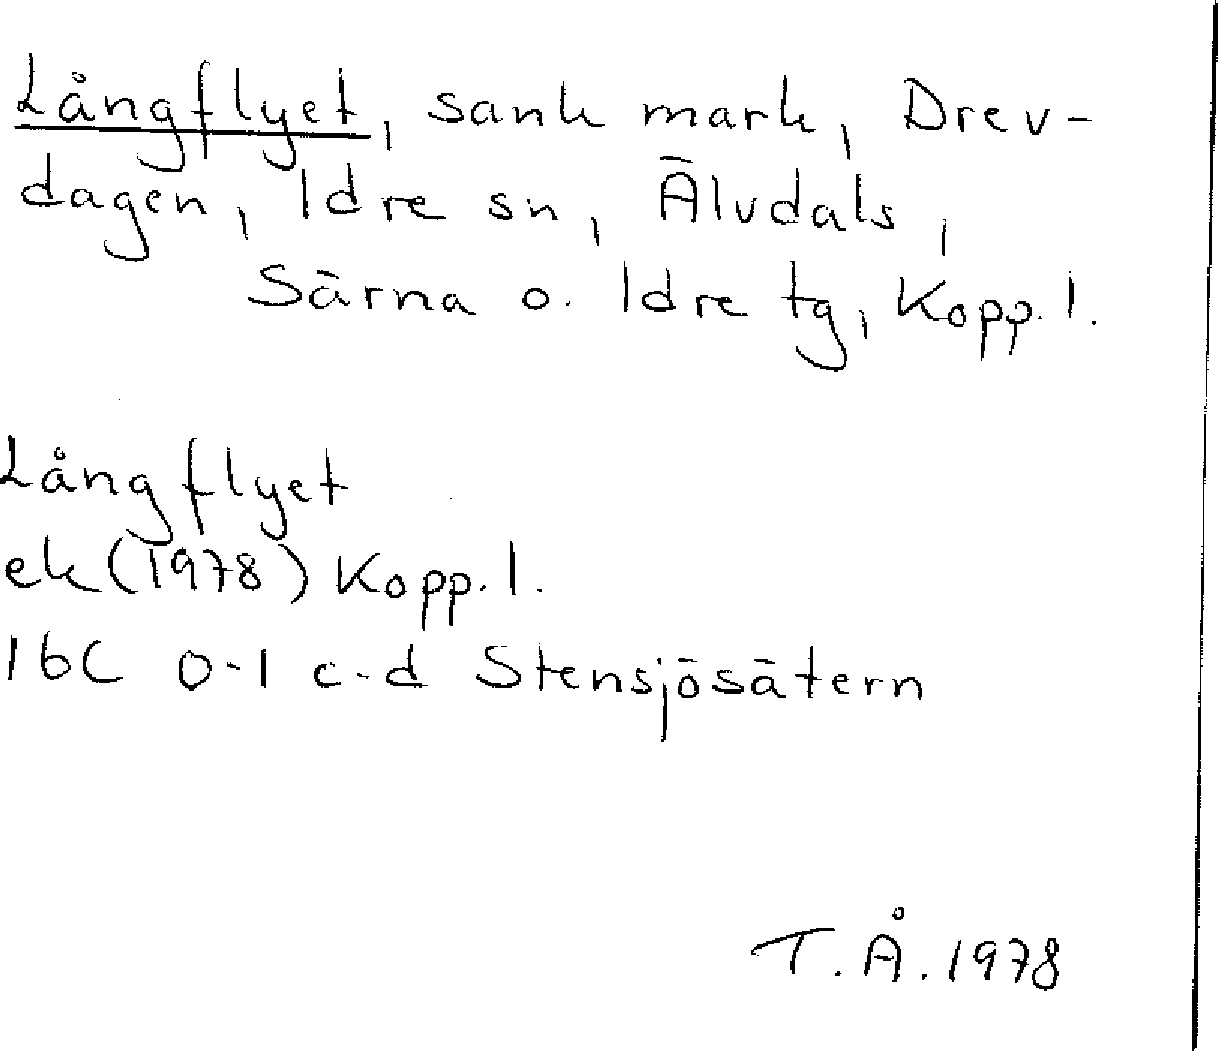 Långflyet, sank mark, Drev-
dagen, Idre sn, Älvdals,
Särna o. Idre tg, Kopp. l.
Långflyet
ek (1978) Kopp. l.
16C 0-1 c-d Stensjösätern
T. Å. 1978